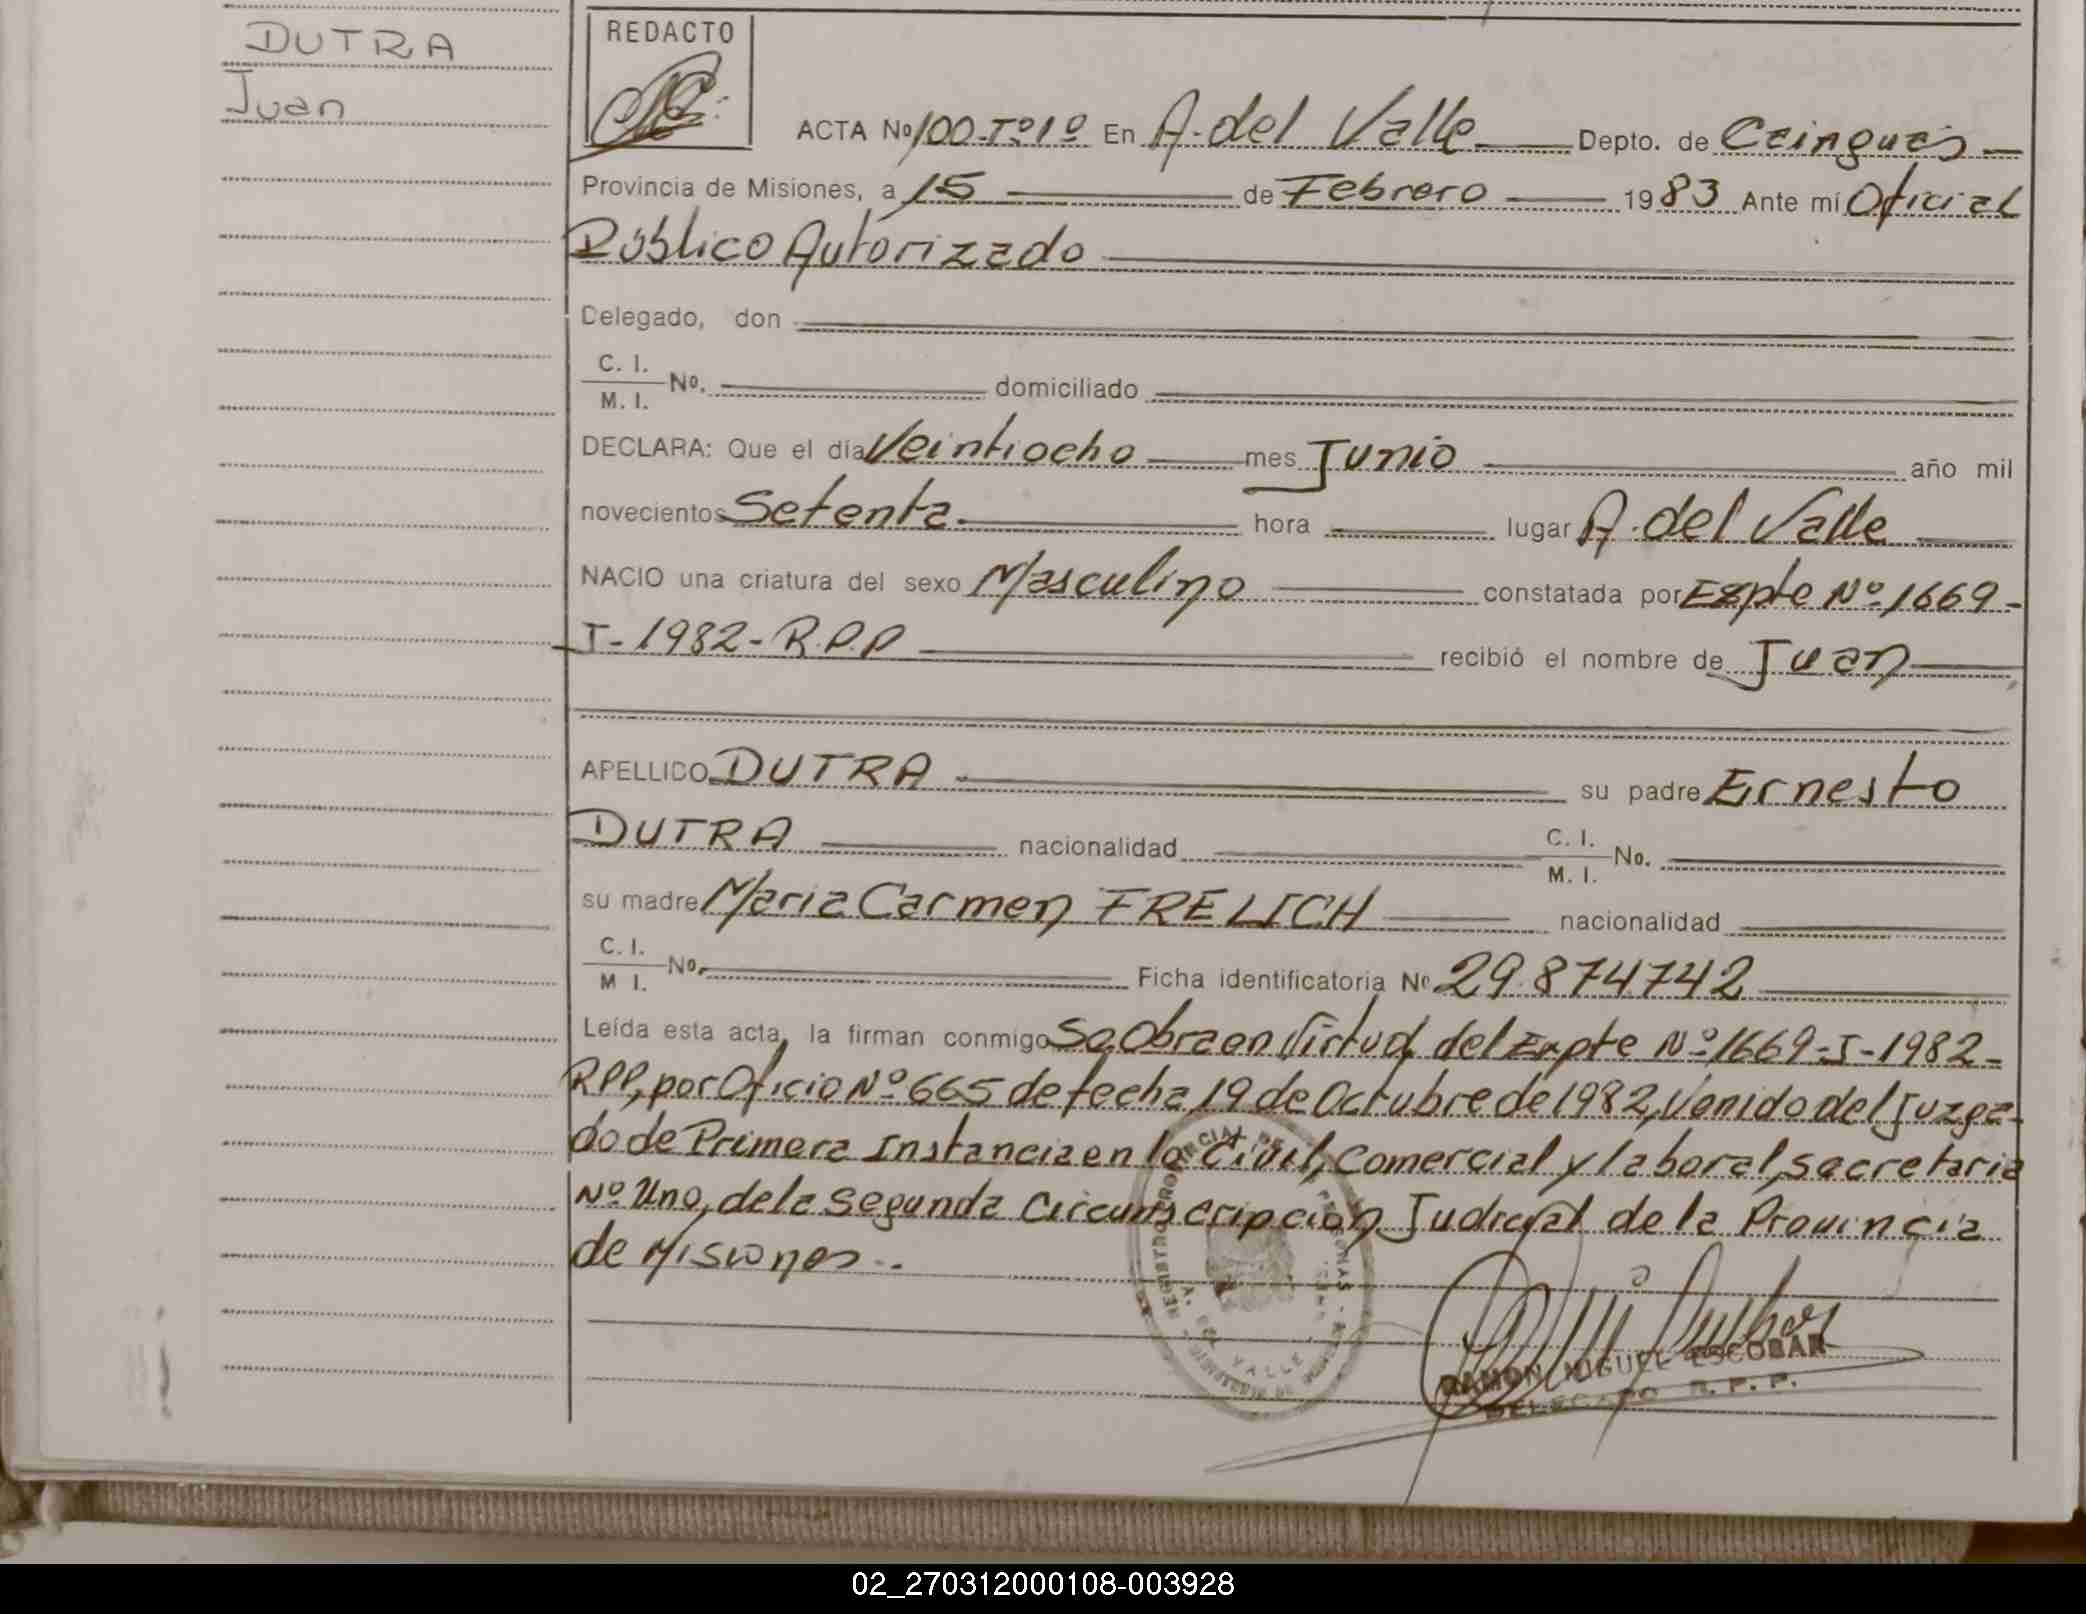 DUTRA
Juan
REDACTO
ACTA Nº 100-Tº1º En A. del Valle Depto. de Cainguás
Provincia de Misiones, a 15 de Febrero 1983 Ante mí Oficial
Público Autorizado
Delegado, don
C. I.
M. I. Nº. domiciliado
DECLARA: Que el día Veintiocho mes Junio año mil
novecientos Setenta hora lugar A. del Valle
NACIO una criatura del sexo Masculino constatada por Expte Nº 1669-
I-1982-R.P.P recibió el nombre de Juan
APELLIDO DUTRA su padre Ernesto
DUTRA nacionalidad C. I.
M. I. No.
su madre Maria Carmen FRELICH nacionalidad
C. I.
M I. Nº. Ficha identificatoria Nº 29.874742
Leída esta acta, la firman conmigo Se Obra en Virtud del Expte Nº 1669-I-1982-
RPP, por Oficio Nº 665 de fecha 19 de Octubre de 1982, Venido del Juzga-
do de Primera Instancia en lo Civil, Comercial y laboral, secretaria
Nº Uno, de la Segunda Circunscripcion Judicial de la Provincia
de Misiones.-
VALLE
RAMON MIGUEL ESCOBAR
DELEGADO R. P. P.
02_270312000108-003928